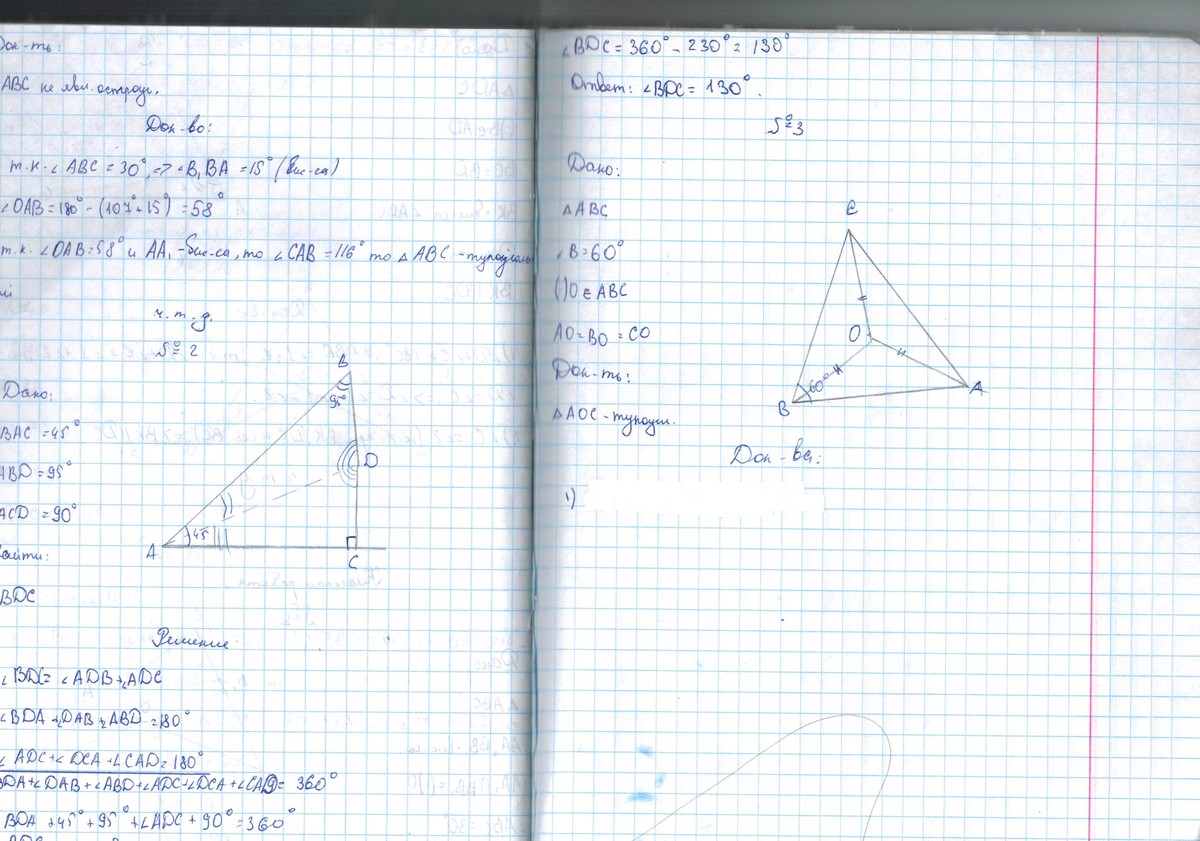 Док-ть:
ABC не явл. остроуг.
Док-во:
т.к. ∠ABC = 30°, => ∠B₁BA = 15° (бис-са)
∠OAB = 180° - (107° + 15°) = 58°
т.к. ∠OAB = 58° и AA₁ - бис-са, то ∠CAB = 116° то △ABC - тупоуголь
ч.т.д.
№ 2
Дано:
BAC = 45°
ABD = 95°
ACD = 90°
Найти:
BDC
B
95°
D
A
45
C
Решение
∠BDC = ∠ADB + ∠ADC
∠BDA + ∠DAB + ∠ABD = 180°
∠ADC + ∠DCA + ∠CAD = 180°
BDA + ∠DAB + ∠ABD + ∠ADC + ∠DCA + ∠CAD = 360°
BDA + 45° + 95° + ∠ADC + 90° = 360°
∠BDC = 360° - 230° = 130°
Ответ: ∠BDC = 130°.
№ 3
Дано:
△ABC
∠B = 60°
(·)O ∈ ABC
AO = BO = CO
Док-ть:
△AOC - тупоуг.
C
O
60°
B
A
Док-ва:
1)